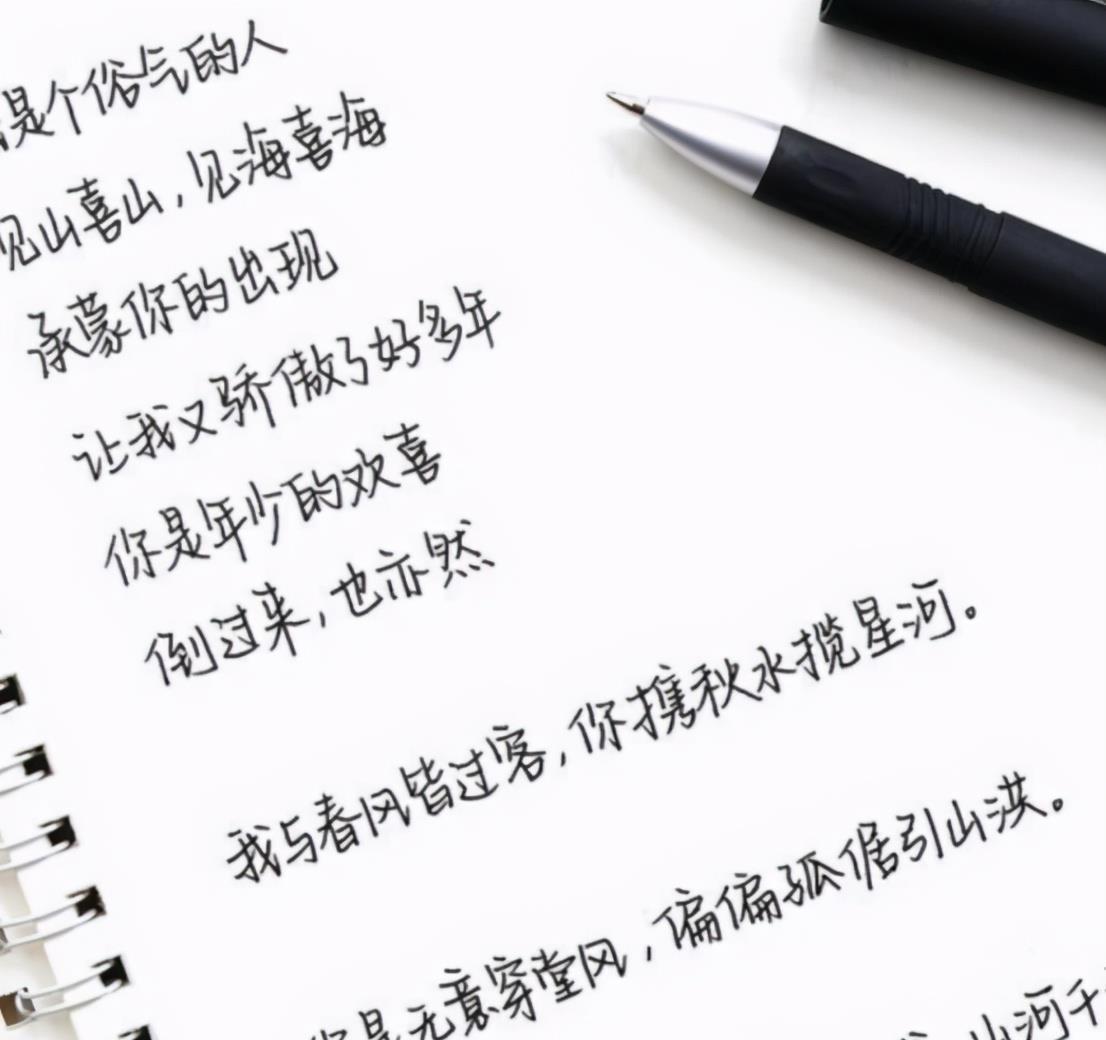 是个俗气的人
见山喜山，见海喜海
承蒙你的出现
让我又骄傲了好多年
你是年少的欢喜
倒过来，也亦然
我与春风皆过客，你携秋水揽星河。
你是无意穿堂风，偏偏孤倨引山洪。
山河千